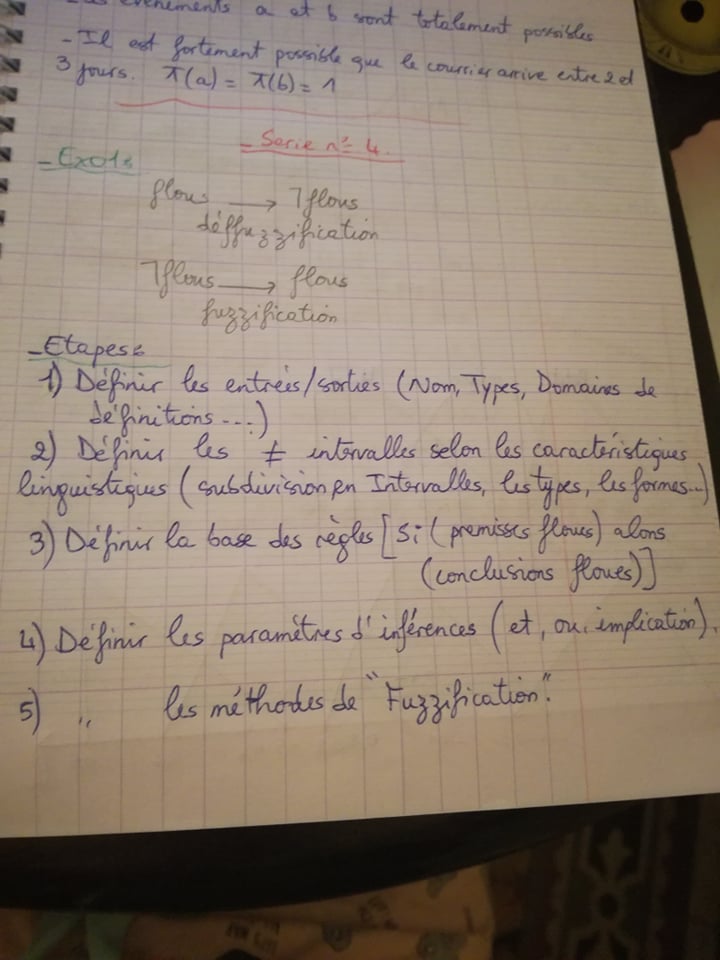 événements a et b sont totalement possibles
- Il est fortement possible que le courrier arrive entre 2 et
3 jours. π(a) = π(b) = 1
- Serie n° 4.
- Exo1:
flous → ⅂flous
déffuzzification
⅂flous → flous
fuzzification
- Etapes:
1) Définir les entrées/sorties (Nom, Types, Domaines de
définitions ...)
2) Définir les ≠ intervalles selon les caractéristiques
linguistiques (subdivision en Intervalles, les types, les formes...)
3) Définir la base des règles [Si (premisses floues) alors
(conclusions floues)]
4) Définir les paramétres d'inférences (et, ou, implication).
5) " les méthodes de "Fuzzification".